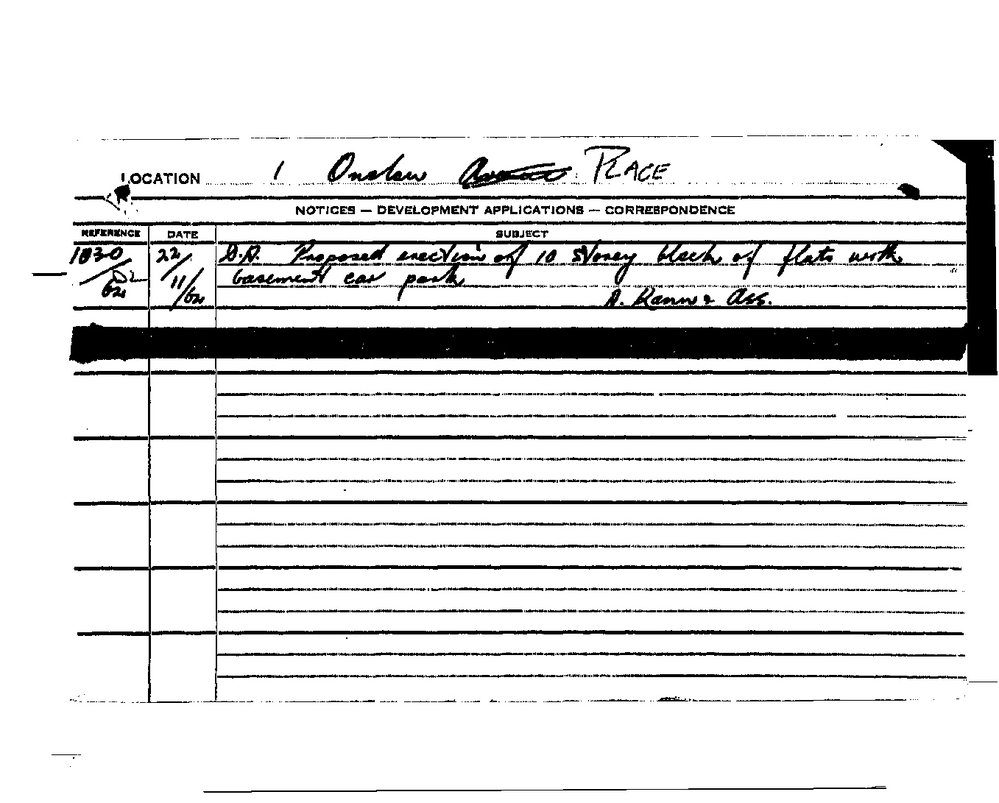 LOCATION 1 Onslow Avenue PLACE
NOTICES — DEVELOPMENT APPLICATIONS — CORRESPONDENCE
REFERENCE DATE SUBJECT
1830 22/ D.A. Proposed erection of 10 storey block of flats with
/62 11/62 basement car park
A. Kann & Ass.